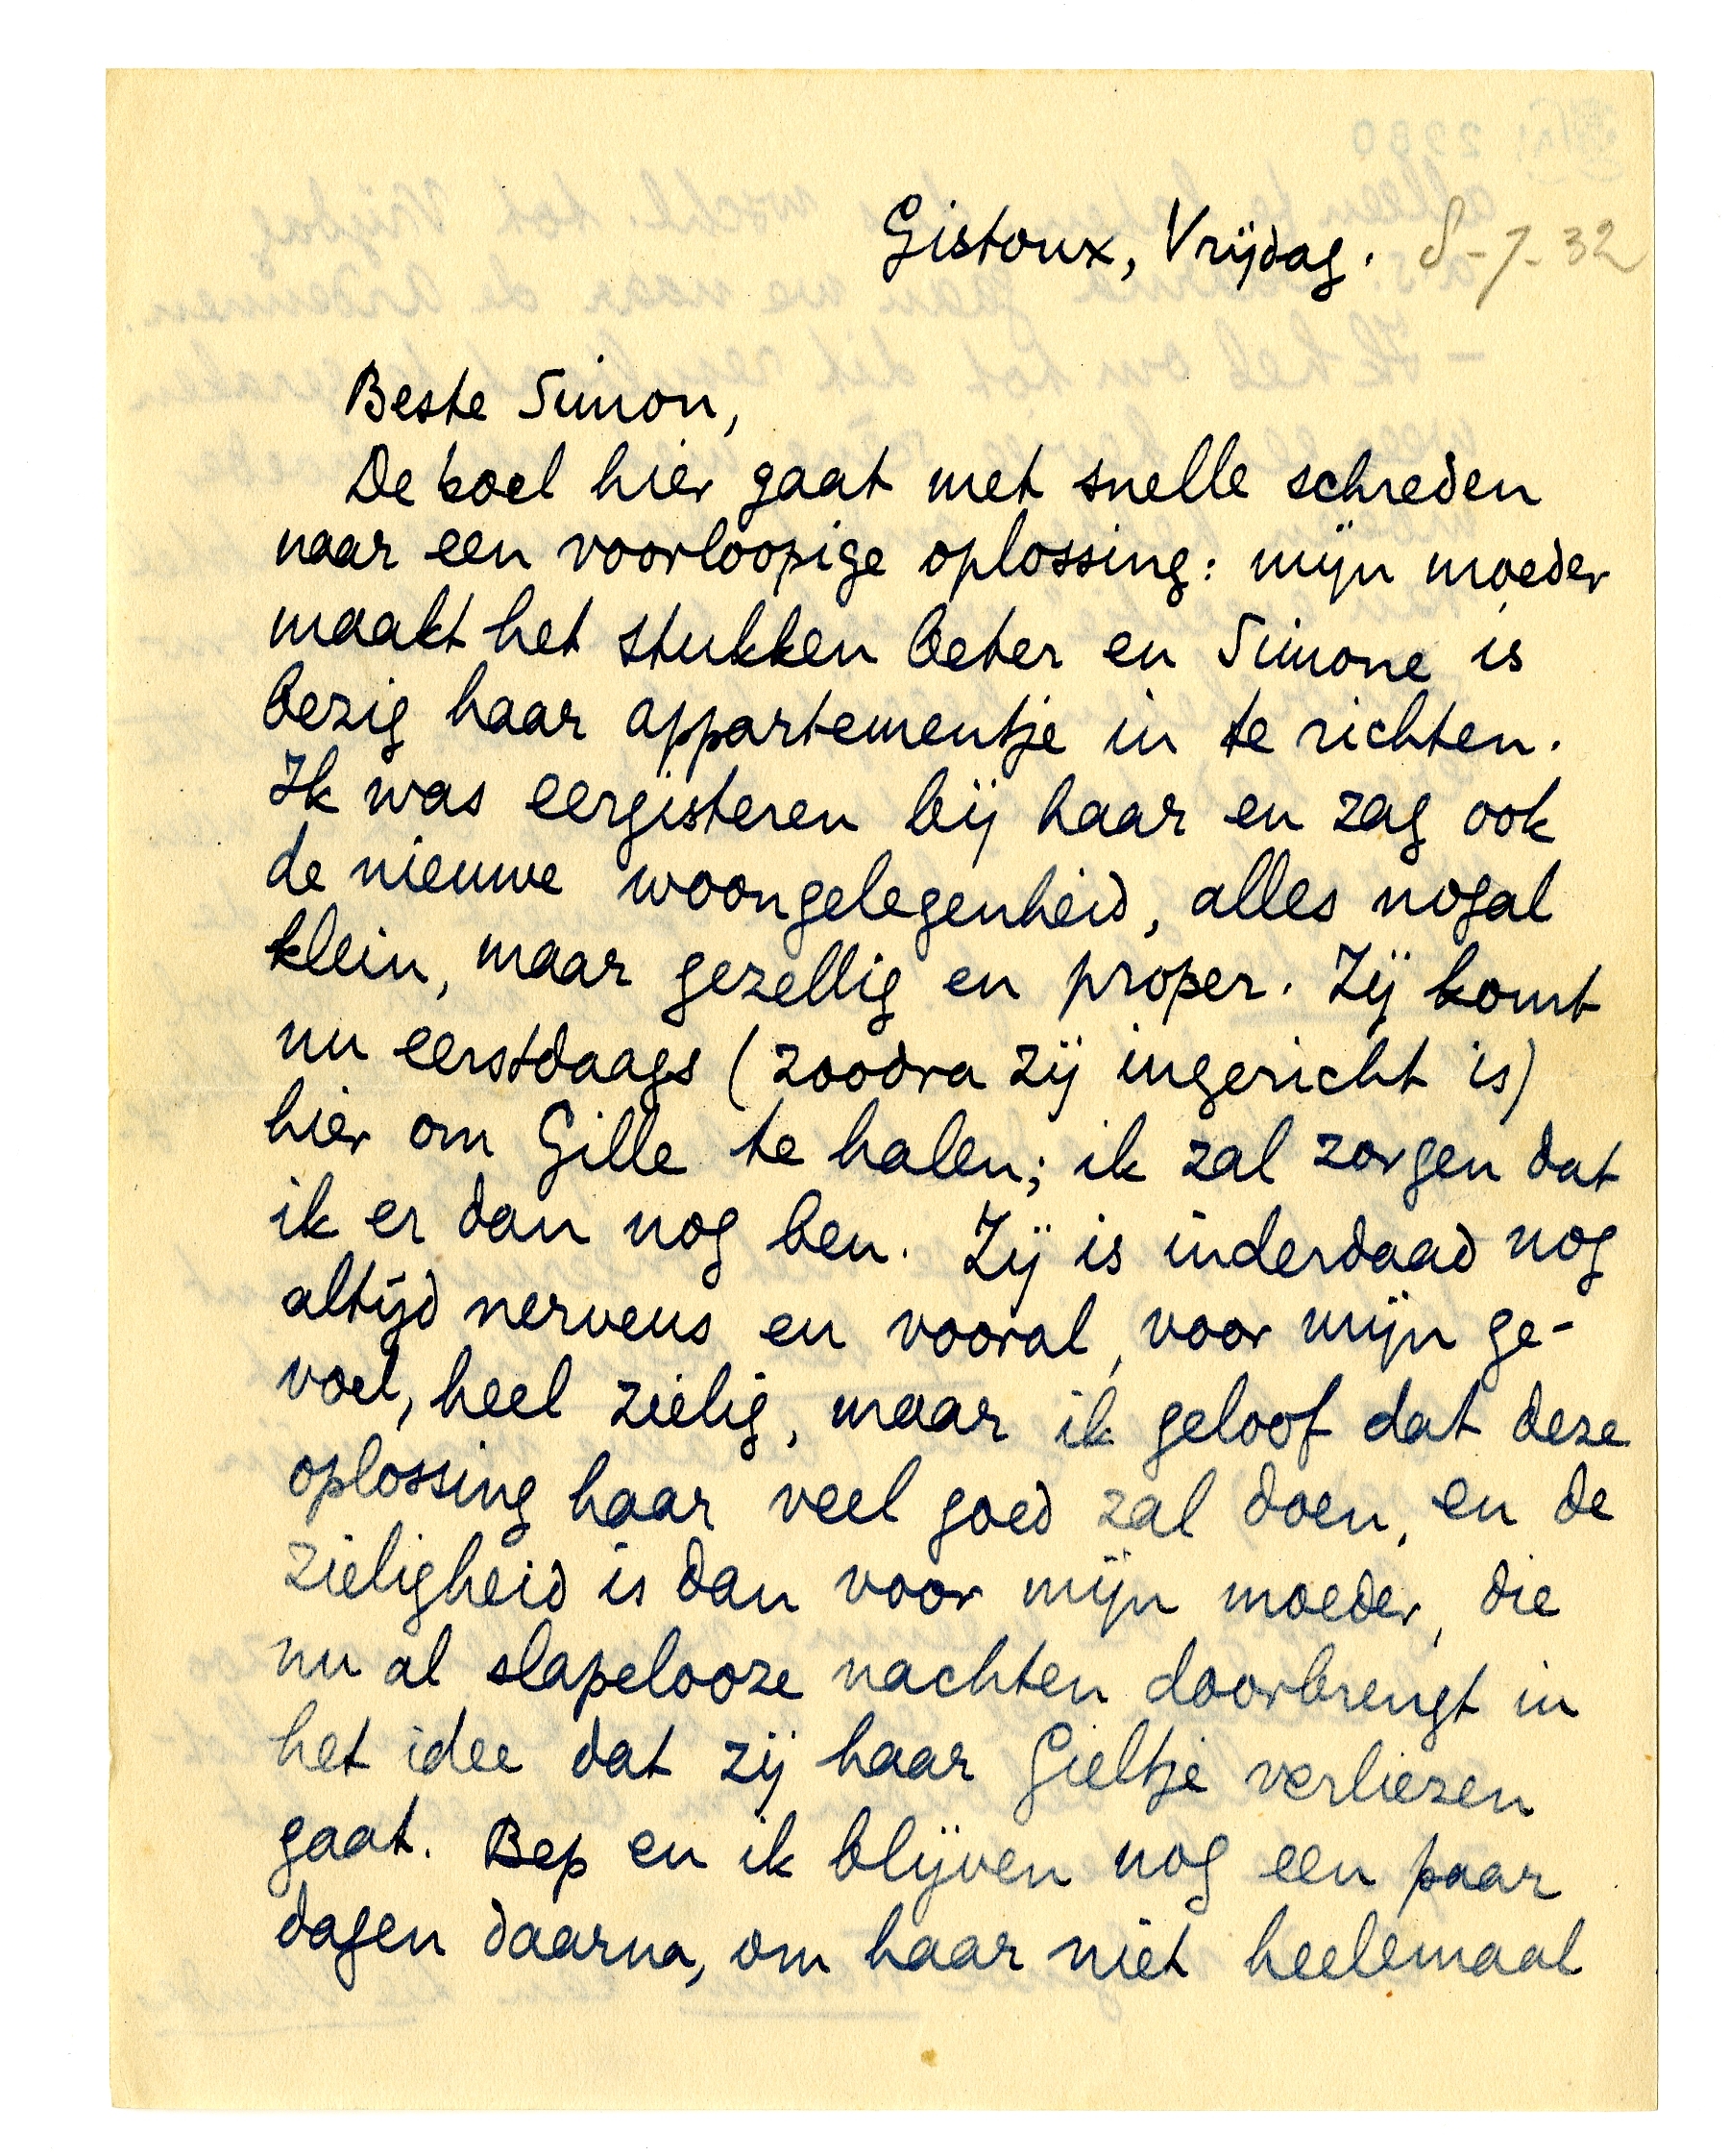 Gistoux, Vrijdag. 8-7-32
Beste Simon,
De boel hier gaat met snelle schreden
naar een voorloopige oplossing: mijn moeder
maakt het stukken beter en Simone is
bezig haar appartementje in te richten.
Ik was eergisteren bij haar en zag ook
de nieuwe woongelegenheid, alles nogal
klein, maar gezellig en proper. Zij komt
nu eerstdaags (zoodra zij ingericht is)
hier om Gille te halen; ik zal zorgen dat
ik er dan nog ben. Zij is inderdaad nog
altijd nerveus en vooral, voor mijn ge-
voel, heel zielig, maar ik geloof dat deze
oplossing haar veel goed zal doen, en de
zieligheid is dan voor mijn moeder, die
nu al slapelooze nachten doorbrengt in
het idee dat zij haar Gieltje verliezen
gaat. Bep en ik blijven nog een paar
dagen daarna, om haar niet heelemaal